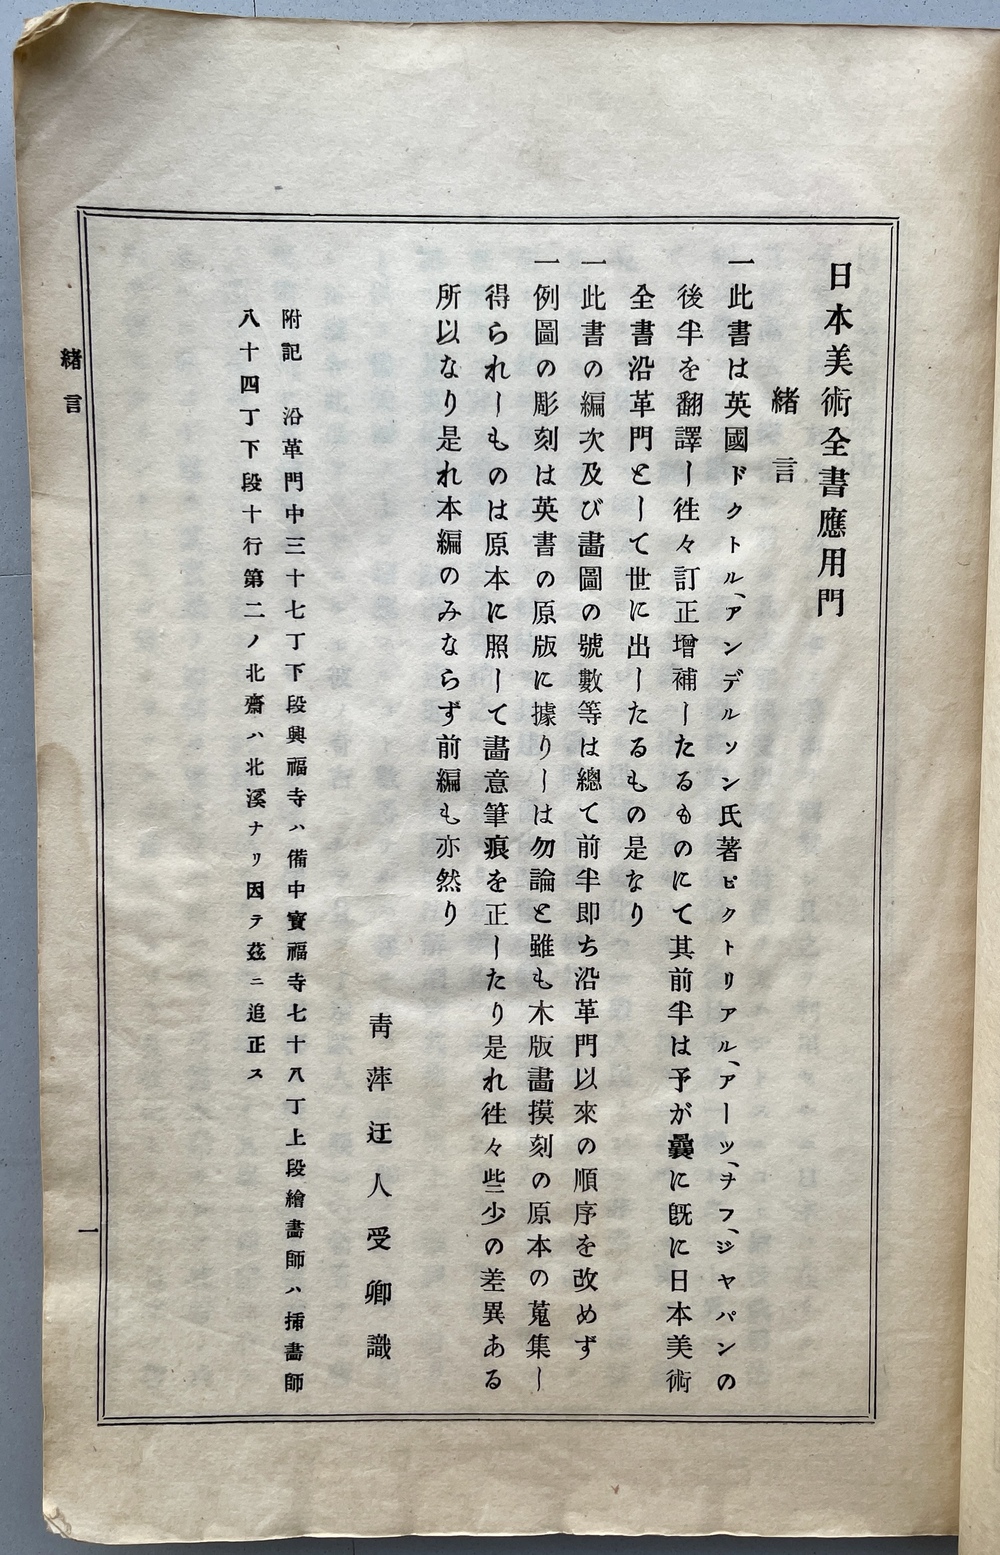 日本美術全書應用門
緒言
一此書は英國ドクトル、アンデルソン氏著ピクトリアル、アーツ、ヲフ、ジヤパンの
後半を翻譯し徃々訂正增補したるものにて其前半は予が曩に既に日本美術
全書沿革門として世に出したるもの是なり
一此書の編次及び畵圖の號數等は總て前半即ち沿革門以來の順序を改めず
一例圖の彫刻は英書の原版に據りしは勿論と雖も木版畵摸刻の原本の蒐集し
得られしものは原本に照して畵意筆痕を正したり是れ徃々些少の差異ある
所以なり是れ本編のみならず前編も亦然り
靑萍迂人受卿識
附記　沿革門中三十七丁下段興福寺ハ備中寳福寺七十八丁上段繪畵師ハ揷畵師
八十四丁下段十行第二ノ北齋ハ北溪ナリ因テ茲ニ追正ス
緒言
一